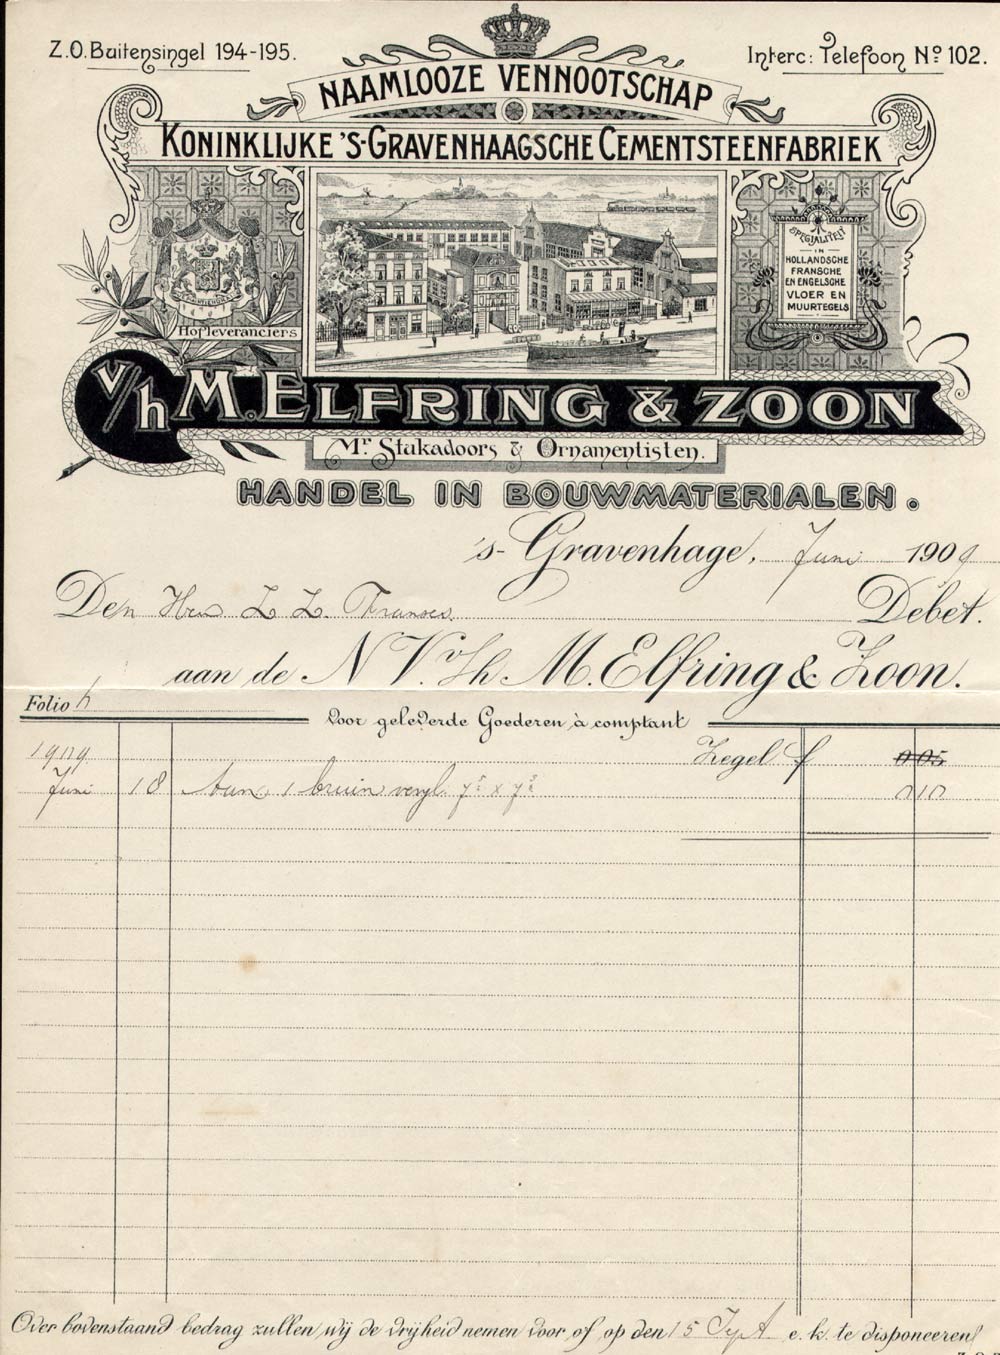 Z.O. Buitensingel 194-195.
Interc: Telefoon No 102.
NAAMLOOZE VENNOOTSCHAP
KONINKLIJKE 'S-GRAVENHAAGSCHE CEMENTSTEENFABRIEK
Hofleveranciers
SPECIALITEIT
IN
HOLLANDSCHE
FRANSCHE
EN ENGELSCHE
VLOER EN
MUURTEGELS
v/h M. ELFRING & ZOON
Mr. Stukadoors & Ornamentisten.
HANDEL IN BOUWMATERIALEN.
's-Gravenhage, Juni 1909
Den Heer L. L. Debet.
aan de N.V. v/h M. Elfring & Zoon.
Folio h
Voor geleverde Goederen à comptant
1909 Zegel f 0 05
Juni 18 Aan 1 bruin vergl. 7⁵ x 7⁵ 0 10
Over bovenstaand bedrag zullen wij de vrijheid nemen voor of op den 15 Sept e.k. te disponeeren